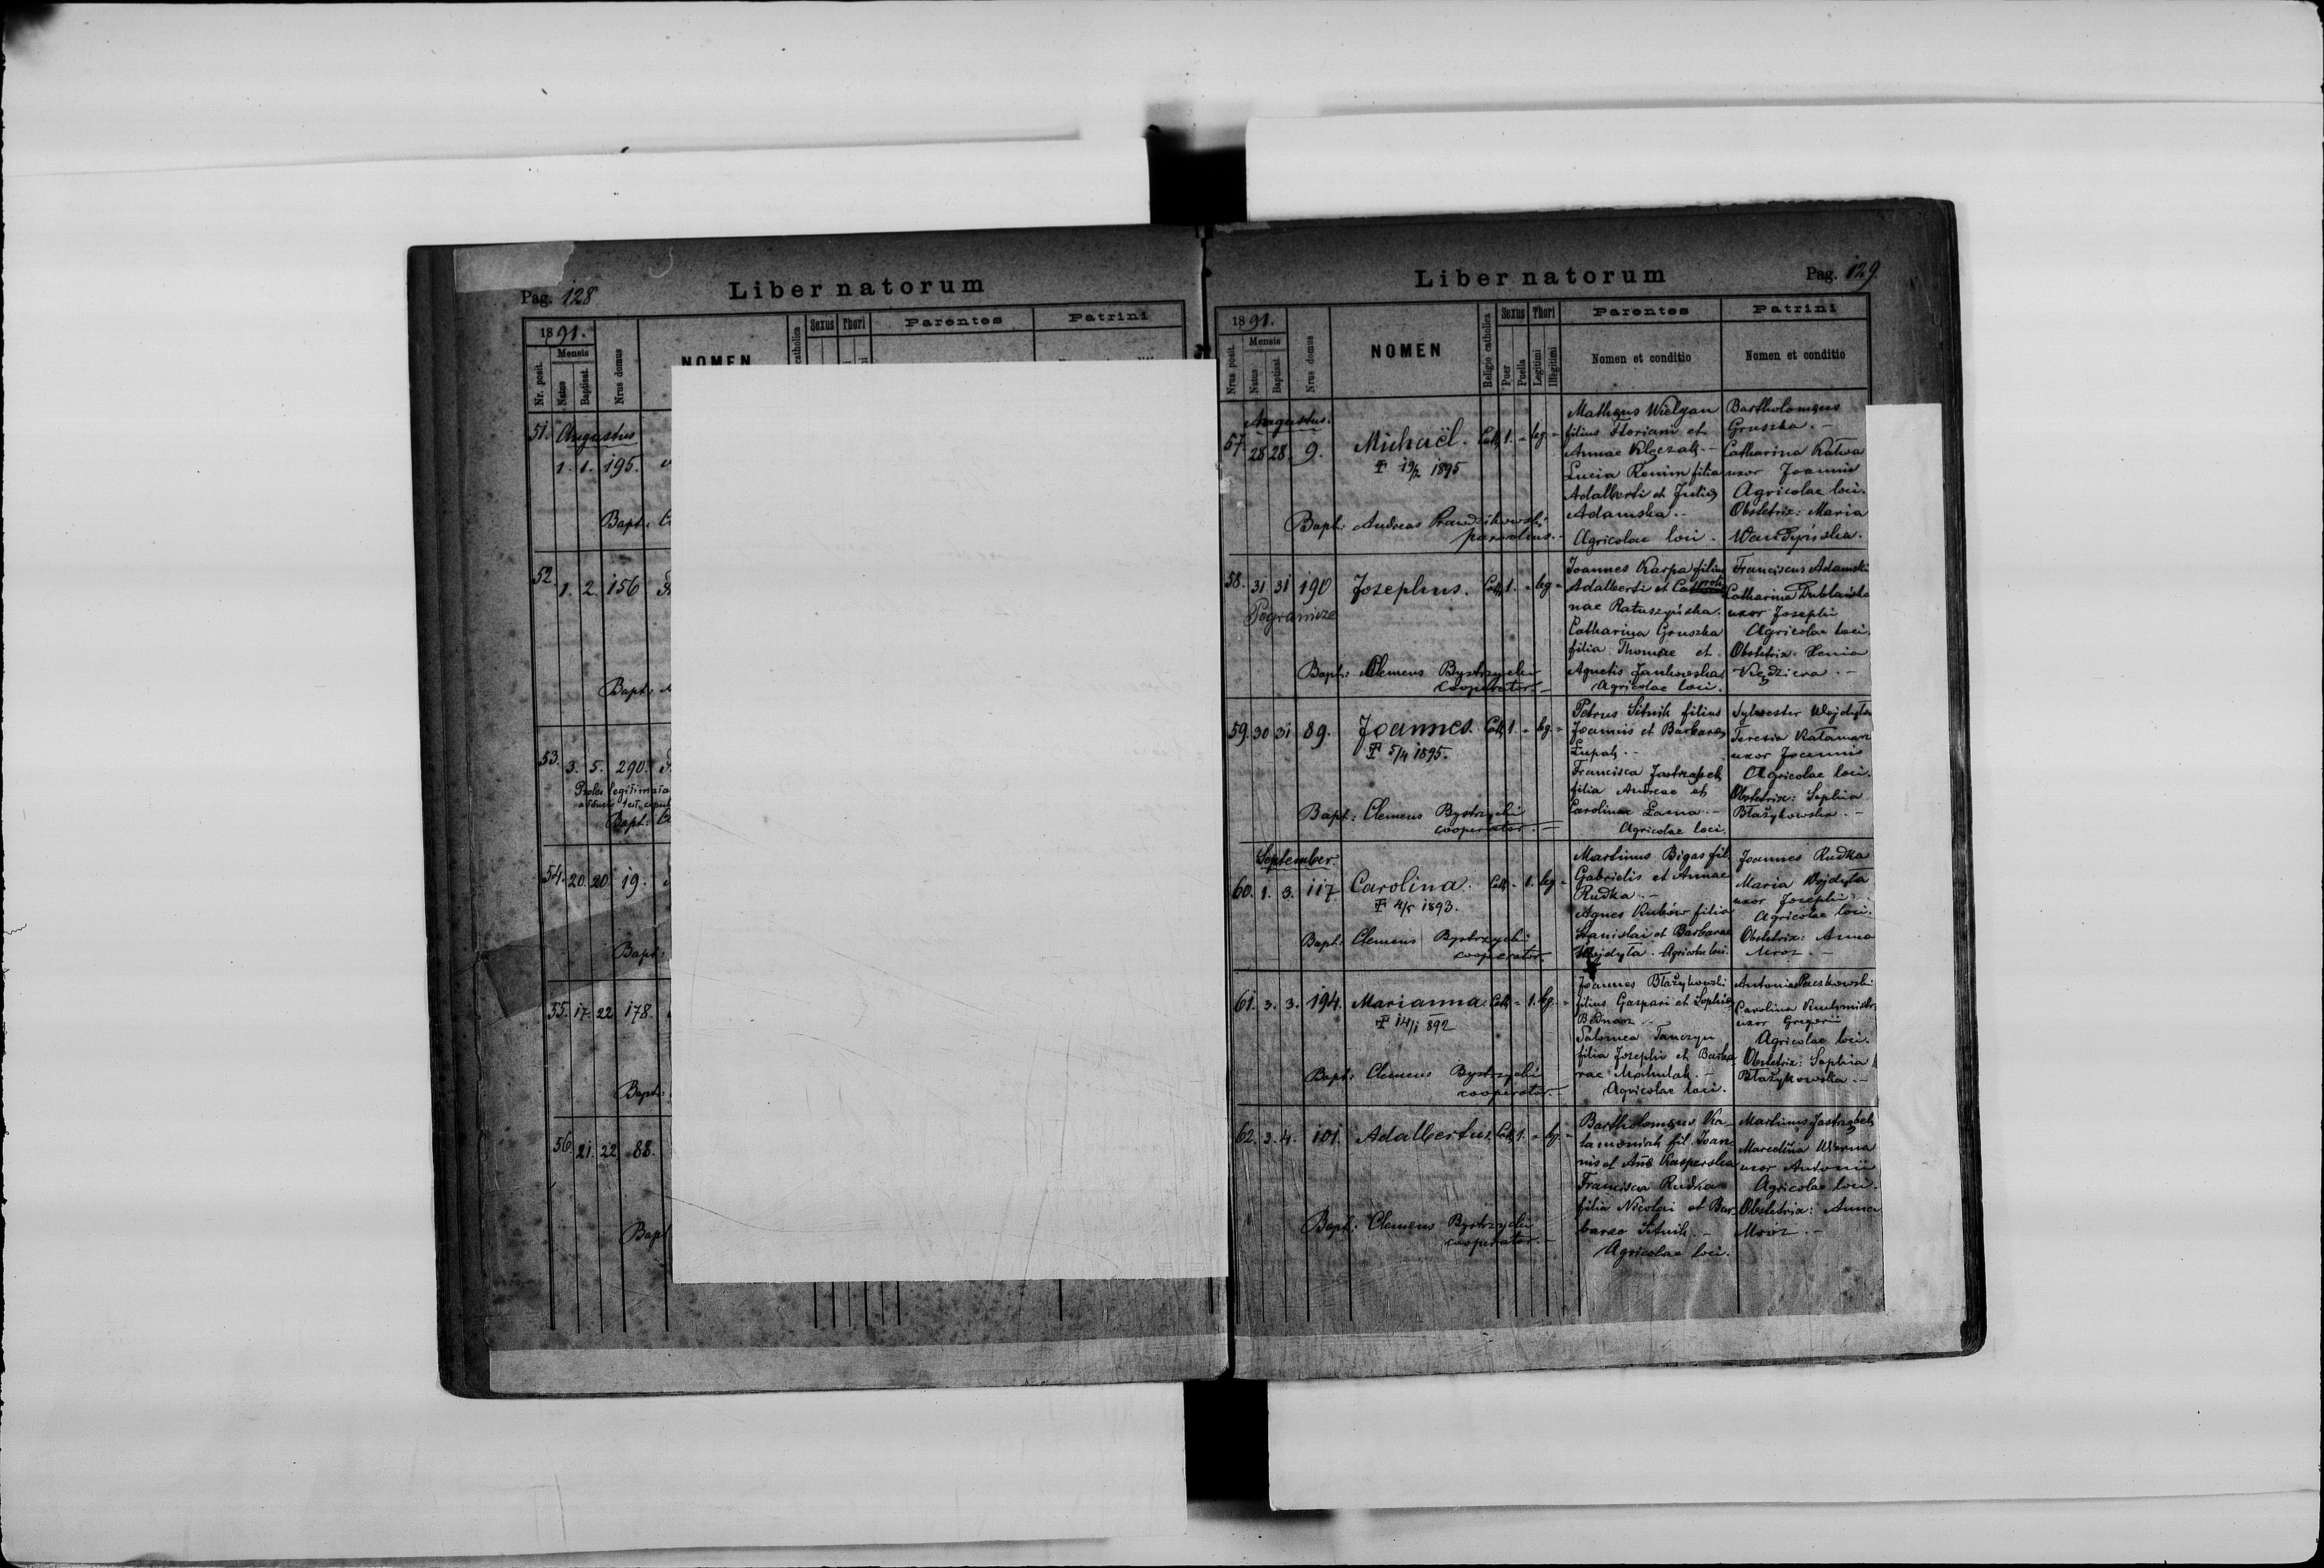 Pag. 128
Liber natorum
1891.
Nr. posit.
Mensis
Natus
Baptisat.
Nrus domus
NOMEN
catholica
Sexus
Thori
Parentes
Patrini
51. Augustus
1. 1. 195.
Bapt:
52. 1. 2. 156
Bapt:
53. 3. 5. 290.
Proles legitimata
Bapt:
54. 20. 20 19.
Bapt:
55. 17. 22 178.
Bapt:
56. 21. 22 88.
Bapt
Liber natorum
Pag. 129.
1891.
Nrus posit.
Mensis
Natus
Baptisat.
Nrus domus
NOMEN
Religio catholica
Sexus
Puer
Puella
Thori
Legitimi
Illegitimi
Parentes
Nomen et conditio
Patrini
Nomen et conditio
Augustus.
57. 28 28. 9. Michaël. Cath 1. - leg. -
19/2 1895
Bapt: Andreas Prawdzikowski
parochus.-
Matheus Wielgan
filius Floriani et
Annae Kleczak.-
Lucia Remim filia
Adalberti et Julies
Adamska.-
Agricolae loci.
Bartholomeus
Gruszka.-
Catharina Kalwa
uxor Joannis
Agricolae loci.
Obstetrix: Maria
58. 31 31 190 Josephus. Cath 1. - leg -
Pogranicze
Bapt: Clemens Bystrzycki
cooperator.-
Joannes Karpa filius
Adalberti et
nae Ratuszyńska.
Catharina Gruszka
filia Thomae et
Agnetis Jankowska
Agricolae loci.
Franciscus Adamski
Catharina Dublańska
uxor Josephi
Agricolae loci.
Obstetrix: Xenia
59. 30 31 89. Joannes. Cath 1. - leg. -
5/4 1895.
Bapt: Clemens Bystrzycki
cooperator.-
Petrus Sitnik filius
Joannis et Barbarae
Łupak.-
Francisca Jastrząbek
filia Andreae et
Carolinae Łama.-
Agricolae loci.
Sylvester Wojdyła
Teresia Kałamarz
uxor Joannis
Agricolae loci.
Obstetrix: Sophia
Błażykowska.-
September.
60. 1. 3. 117 Carolina. Cath - 1. leg -
4/5 1893.
Bapt: Clemens Bystrzycki
cooperator.
Martinus Bigas fil.
Gabrielis et Annae
Rudka.-
Agnes Kubów filia
Stanislai et Barbarae
Wojdyła. Agricolae loci.
Joannes Rudka
Maria Wojdyła
uxor Josephi
Agricolae loci.
Obstetrix: Anna
Mroz.-
61. 3. 3. 194. Marianna. Cath - 1. leg. -
14/1 892
Bapt: Clemens Bystrzycki
cooperator.-
Joannes Błażykowski
filius Gaspari et Sophies
Bednarz.-
Salomea Tanczyn
filia Josephi et Barba
rae Machulak.-
Agricolae loci.
Antonius
Carolina
uxor Gregorii
Agricolae loci.
Obstetrix: Sophia
Błażykowska.-
62. 3. 4. 101 Adalbertus. Cath 1. - leg. -
Bapt: Clemens Bystrzycki
cooperator.-
Bartholomeus Ka-
łamoniak fil. Joan-
nis et Annae Kasperska
Francisca Rudka
filia Nicolai et Bar-
barae Sitnik.-
Agricolae loci.
Martinus Jastrząbek
Marcelina Wierna
uxor Antonii
Agricolae loci.
Obstetrix: Anna
Mróz.-